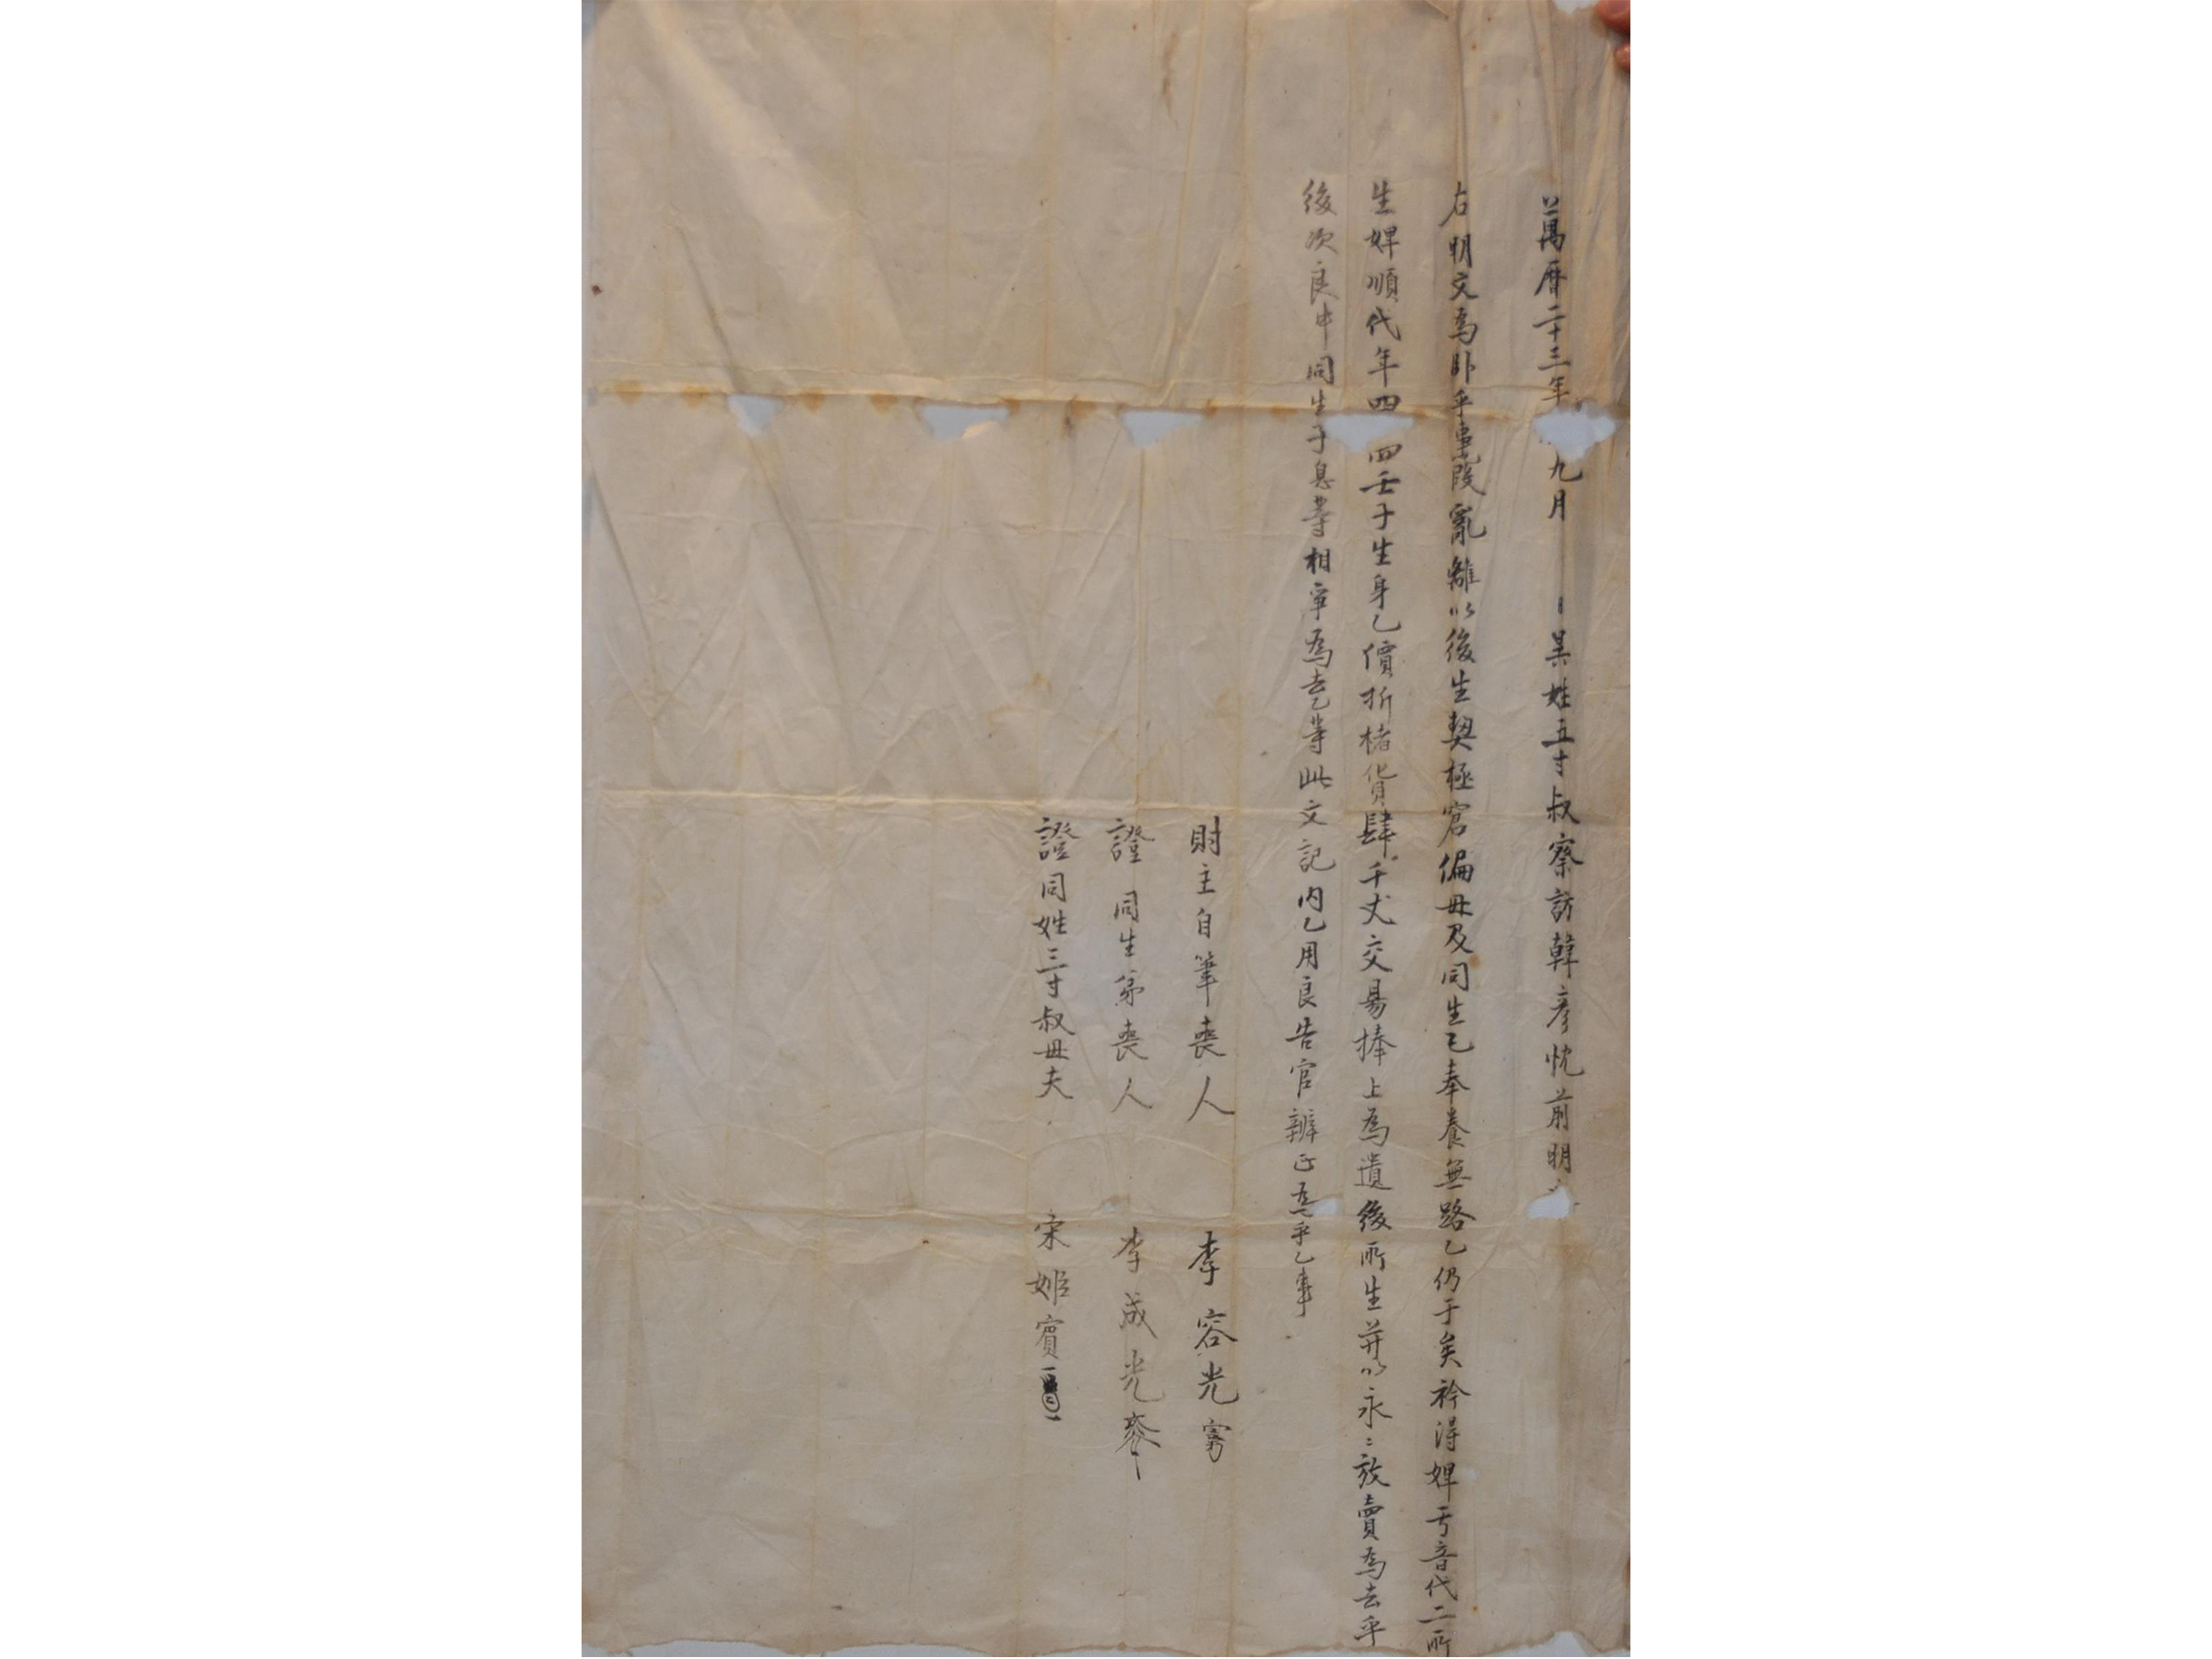 萬曆二十三年九月 日異姓五寸叔察訪韓彦忱前明
右明文爲卧乎事段亂離以後生契極窘偏母及同生乙奉養無路乙仍于矣衿得婢亏音代二所
生婢順代年四四壬子生身乙價折楮貨肆千丈交易捧上爲遣後所生幷以永〻放賣爲去乎
後次良中同生子息等相爭爲去乙等此文記內乙用良告官辨正爲乎乙事
財主自筆喪人 李容光
證 同生弟喪人 李成光
證同姓三寸叔母夫 宋姬賓